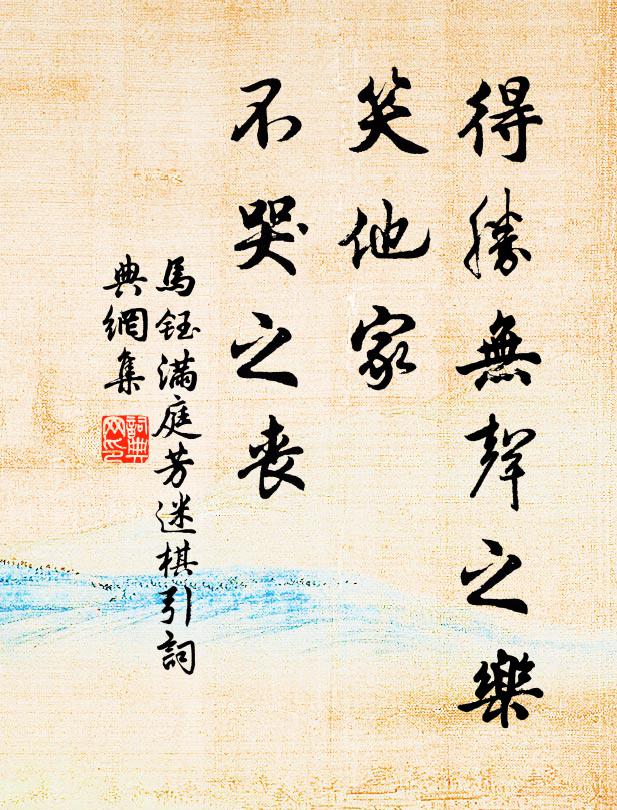 得勝無聲之樂
笑他家
不哭之喪
馬鈺滿庭芳迷棋引詞
典網集
詞典
網印